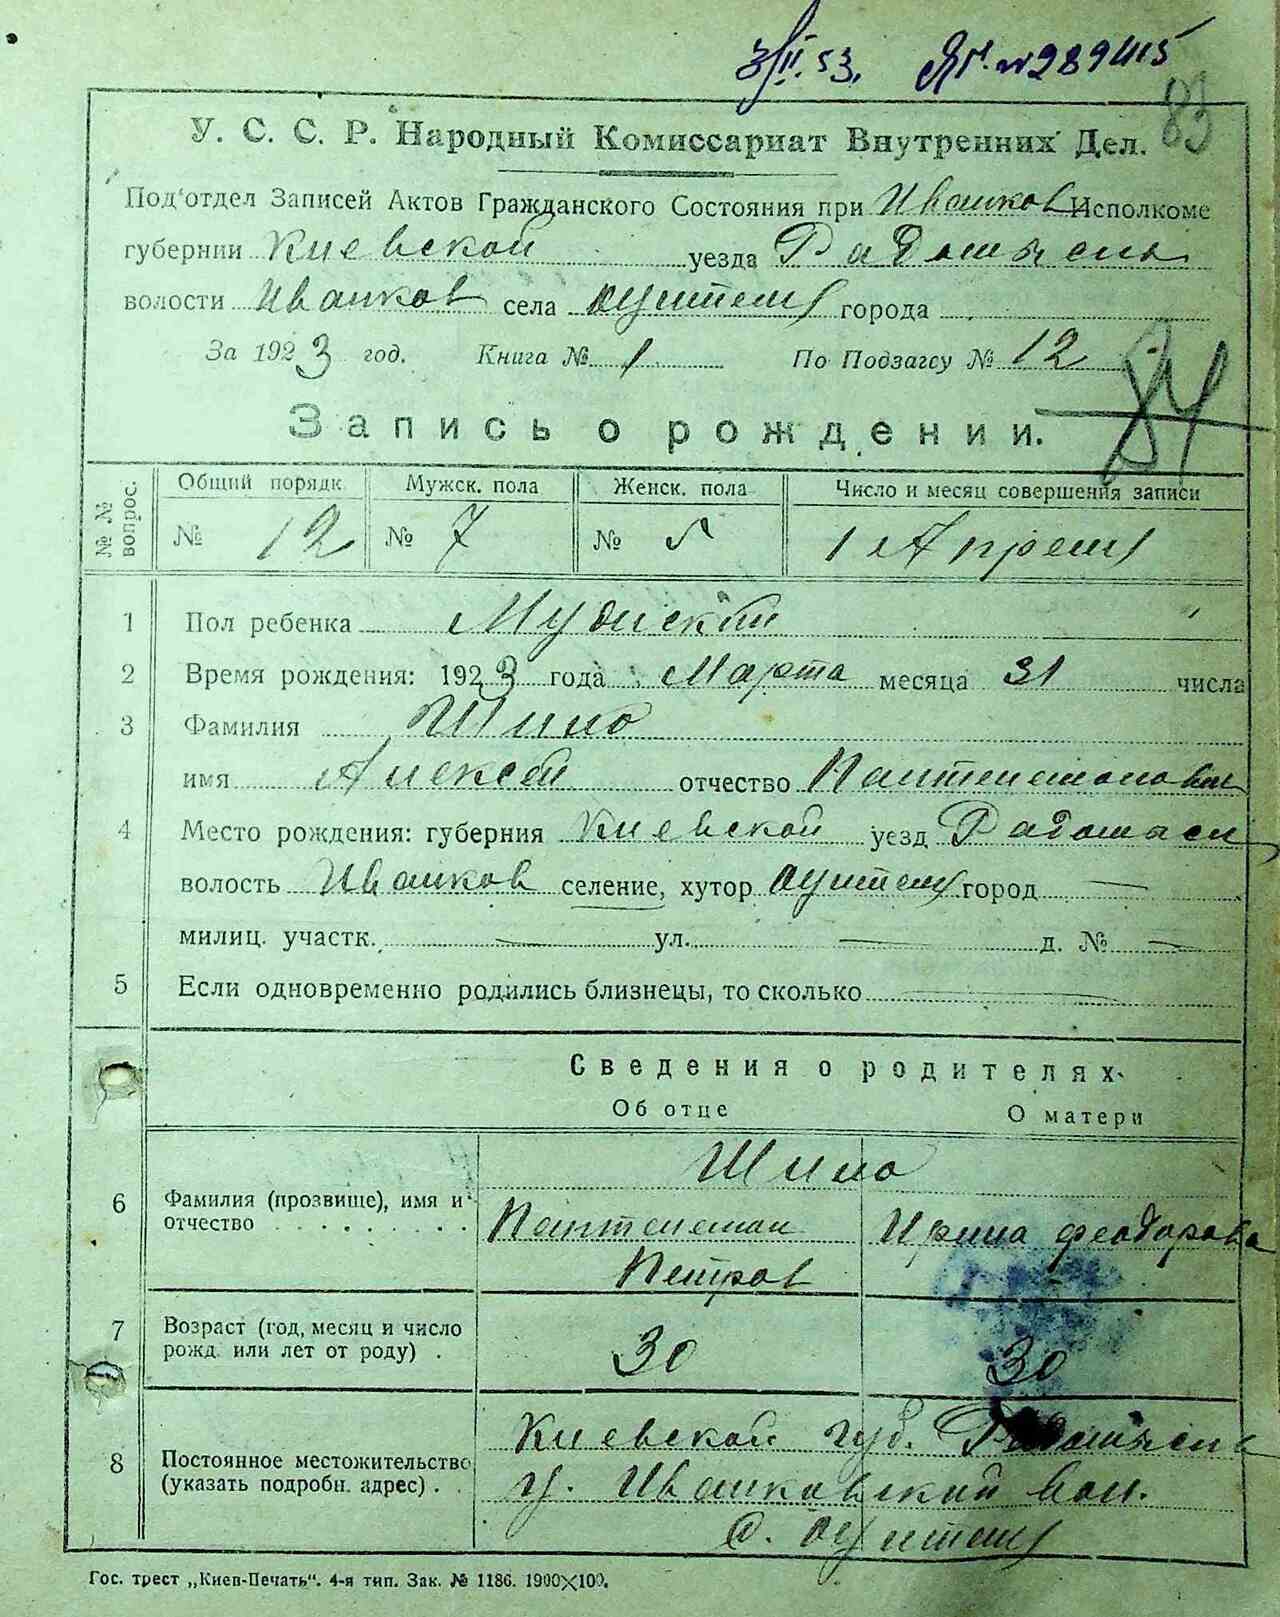 3/II.53. ЯГ. № 289415
83
У. С. С. Р. Народный Комиссариат Внутренних Дел.
Под'отдел Записей Актов Гражданского Состояния при Иванков Исполкоме
губернии Киевской уезда Радомысль
волости Иванков села города
За 1923 год. Книга № 1 По Подзагсу № 12
84
Запись о рождении.
№ № вопрос. Общий порядк. Мужск. пола Женск. пола Число и месяц совершения записи
№ 12 № 7 № 5 1 Апреля
1 Пол ребенка Мужской
2 Время рождения: 1923 года Марта месяца 31 числа
3 Фамилия Шило
имя Алексей отчество Пантелемонович
4 Место рождения: губерния Киевской уезд Радомысл
волость Иванков селение, хутор город —
милиц. участк. — ул. — д. № —
5 Если одновременно родились близнецы, то сколько —
Сведения о родителях
Об отце О матери
Шило
6 Фамилия (прозвище), имя и отчество Пантелемон Петров Ирина Феодорова
7 Возраст (год, месяц и число рожд. или лет от роду) . 30 30
8 Постоянное местожительство (указать подробн. адрес) . . Киевской губ. Радомысль
у. Иванковской вол.
с.
Гос. трест „Киев-Печать“. 4-я тип. Зак. № 1186. 1900×100.